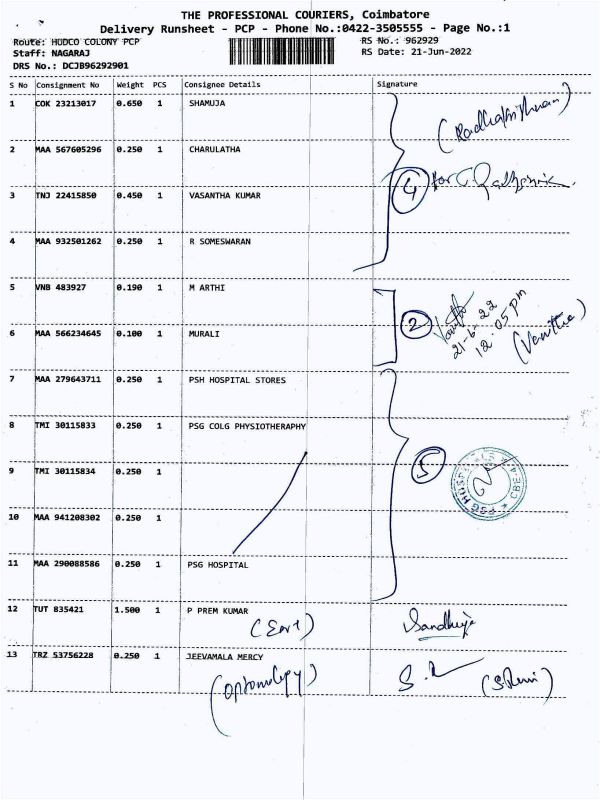 THE PROFESSIONAL COURIERS, Coimbatore
Delivery Runsheet - PCP - Phone No.:0422-3505555 - Page No.:1
Route: HUDCO COLONY PCP RS No.: 962929
Staff: NAGARAJ RS Date: 21-Jun-2022
DRS No.: DCJB96292901
S No Consignment No Weight PCS Consignee Details Signature
1 COK 23213017 0.650 1 SHAMUJA
2 MAA 567605296 0.250 1 CHARULATHA
for
4
3 TNJ 22415850 0.450 1 VASANTHA KUMAR
4 MAA 932501262 0.250 1 R SOMESWARAN
5 VNB 483927 0.190 1 M ARTHI
2 21-6-22
12.05 pm
6 MAA 566234645 0.100 1 MURALI
7 MAA 279643711 0.250 1 PSH HOSPITAL STORES
8 TMI 30115833 0.250 1 PSG COLG PHYSIOTHERAPHY
5
9 TMI 30115834 0.250 1
10 MAA 941208302 0.250 1
11 MAA 290088586 0.250 1 PSG HOSPITAL
12 TUT 835421 1.500 1 P PREM KUMAR
Sandhiya
13 TRZ 53756228 0.250 1 JEEVAMALA MERCY
S.R